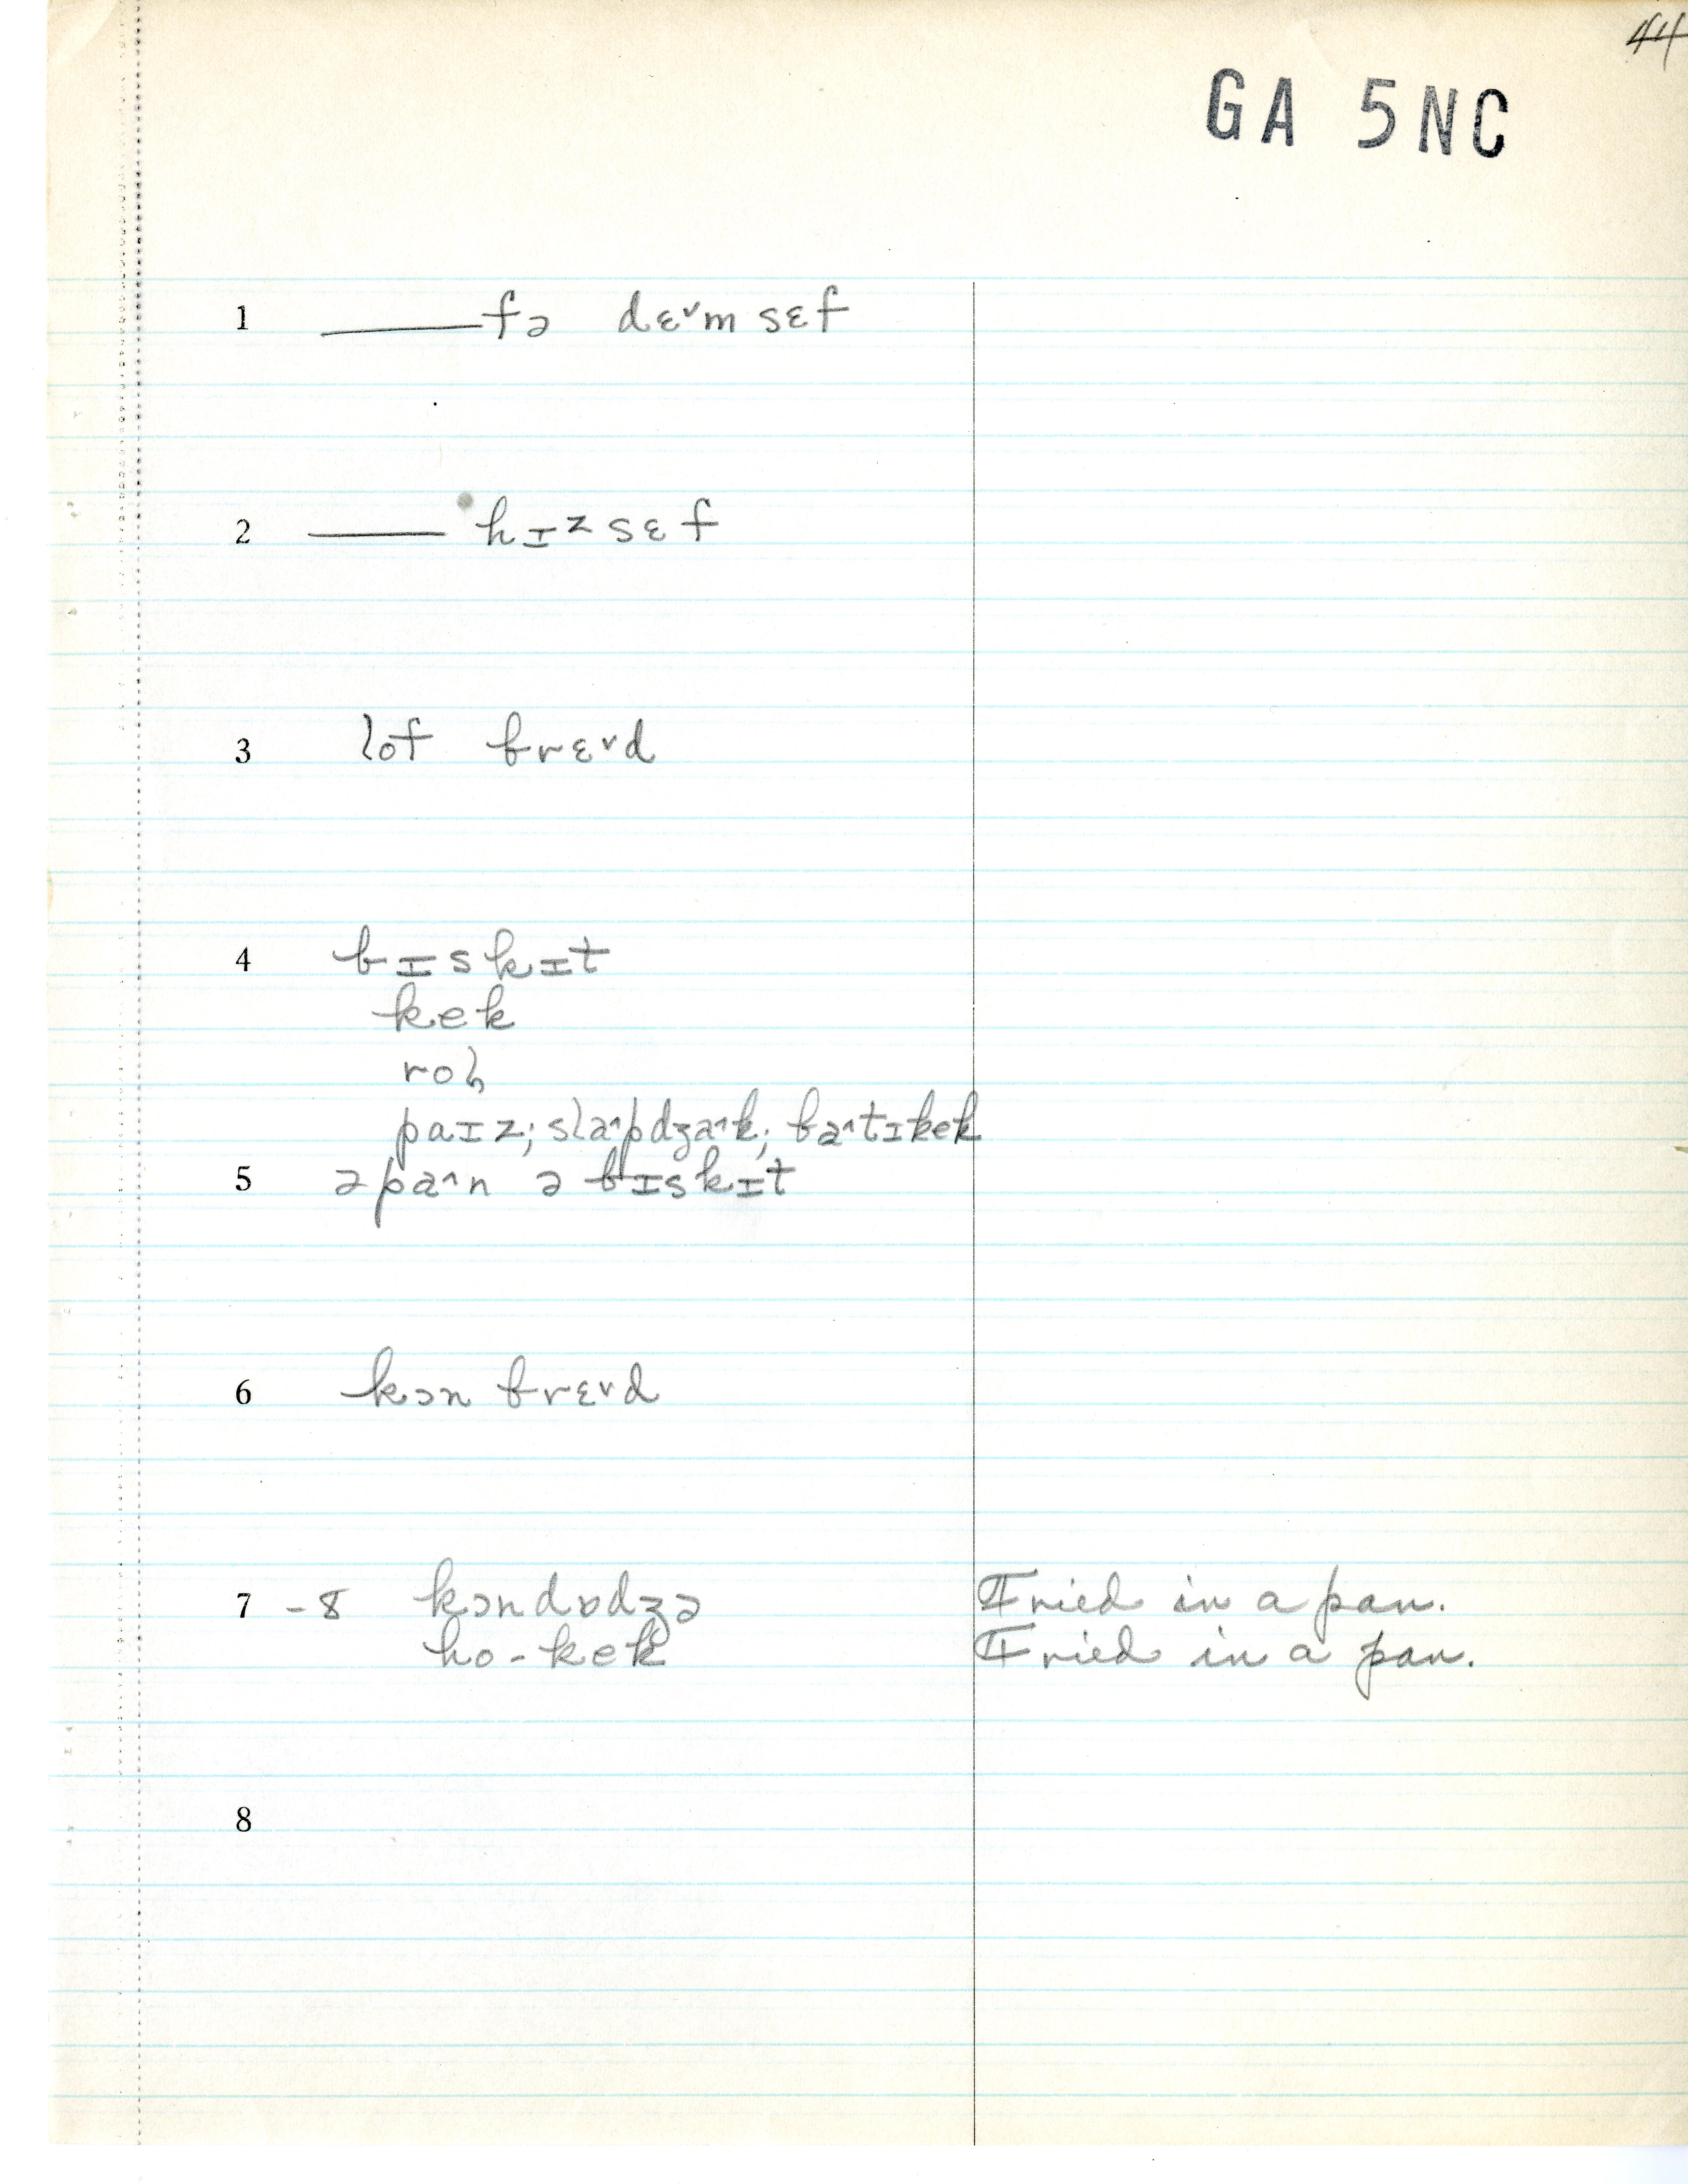 44
GA 5NC
1 ______fə dɛ˅msɛf
2 ______ hɪzsɛf
3 lof brɛ˅d
4 bɪskɪt
kek
roɫ
paɪz; slaʌpdʒaʌk; baʌtɪkek
5 əpaʌn ə bɪskɪt
6 kɔn brɛ˅d
7 -8 kɔndɒdʒə Fried in a pan.
ho-kek Fried in a pan.
8